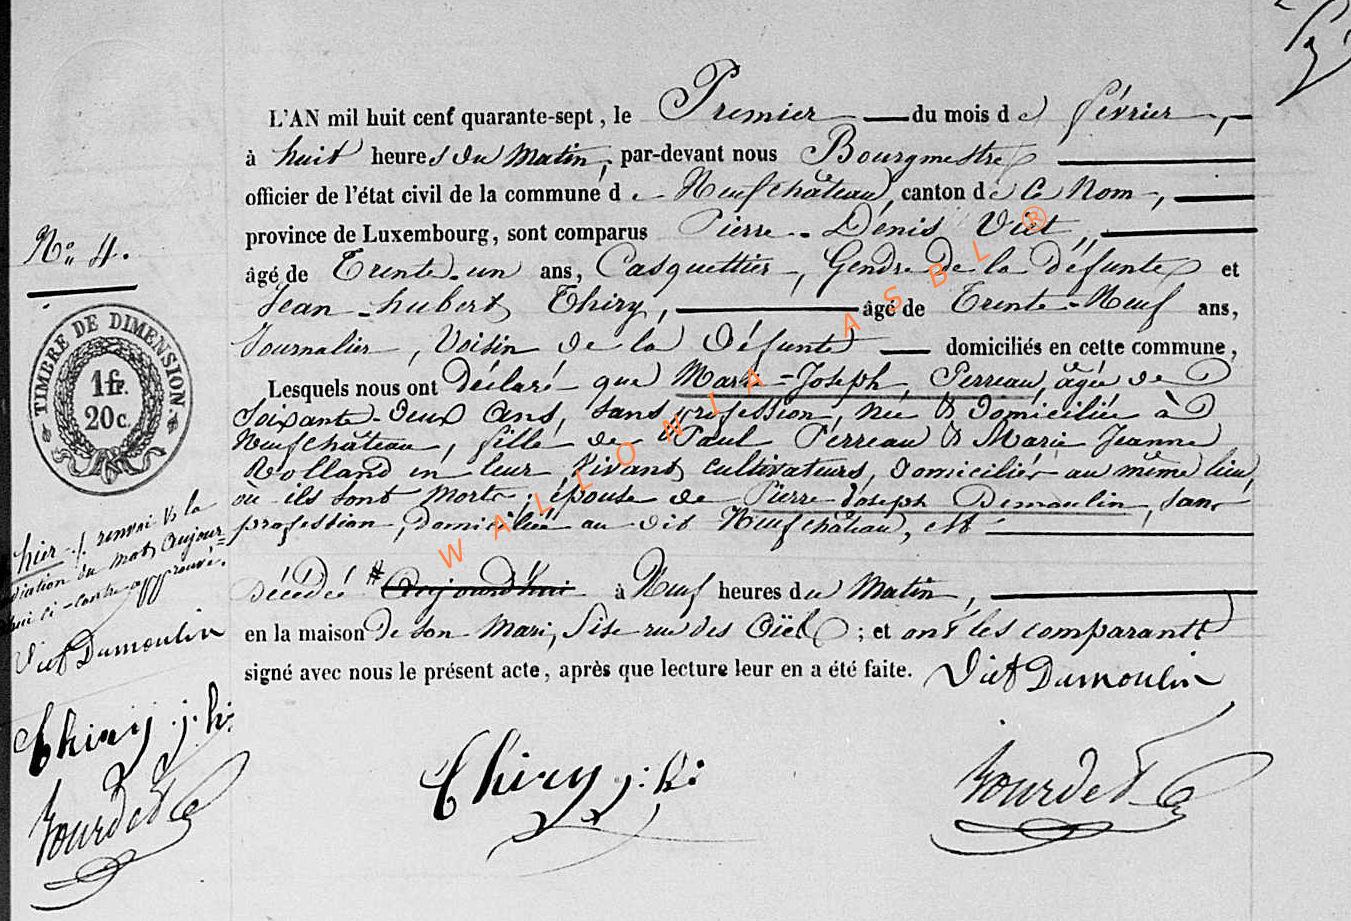 L'AN mil huit cent quarante-sept, le Premier du mois de février,
à huit heures du Matin, par-devant nous Bourgmestre
officier de l'état civil de la commune de Neufchâteau, canton de Ce Nom,
province de Luxembourg, sont comparus Pierre-Dénis Viet,
âgé de Trente-un ans, Casquettier, Gendre de la Défunte et
Jean-hubert Thiry, âgé de Trente-Neuf ans,
Journalier, Voisin de la Défunte domiciliés en cette commune,
Lesquels nous ont Déclaré que Marie-Joseph Perreau, âgée de
Soixante-Deux Ans, sans profession, née & domiciliée à
Neufchâteau, fille de Paul Perreau & Marie Jeanne
Rolland en leur Vivant cultivateurs, domiciliés au même lieu,
où ils sont morts; épouse de Pierre Joseph Demoulin, sans
profession, domicilié au dit Neufchâteau, est
Décédée # Aujourd'hui à Neuf heures du Matin,
en la maison de son Mari, Sise rue des ; et ont les comparants
signé avec nous le présent acte, après que lecture leur en a été faite. Viet Dumoulin
Thiry j: h:
Bourdet
N° 4.
TIMBRE DE DIMENSION
1 fr.
20 c.
hier renvoi & la
du mot Aujour=
hui ci-contre approuvé.
Viet Dumoulin
Thiry j: h:
Bourdet
WALLONIA ASBL ®